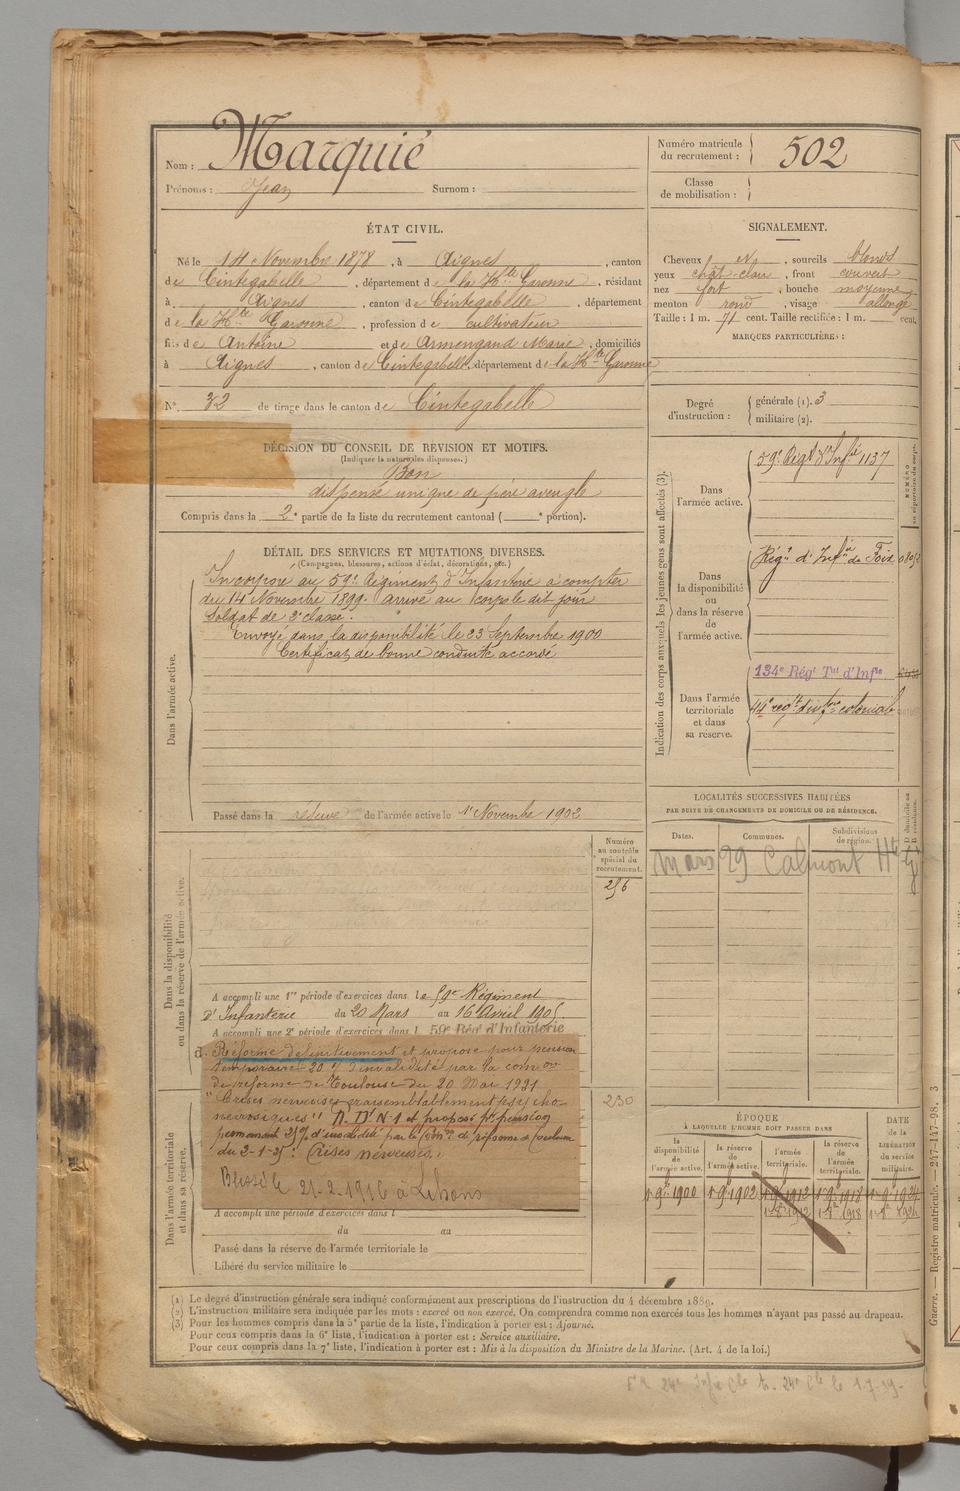 Nom : Marquié
Prénoms : Jean Surnom :
Numéro matricule du recrutement : 502
Classe de mobilisation :
ÉTAT CIVIL.
Né le 14 Novembre 1878, à Aignes, canton
de Cintegabelle, département de la Hte Garonne, résidant
à Aignes, canton de Cintegabelle, département
de la Hte Garonne, profession de cultivateur
fils de Antoine et de Armengaud Marie, domiciliés
à Aignes, canton de Cintegabelle, département de la Hte Garonne
N° 32 de tirage dans le canton de Cintegabelle
SIGNALEMENT.
Cheveux N, sourcils blonds
yeux chât-clair, front couvert
nez fort, bouche moyenne
menton rond, visage allongé
Taille : 1 m. 71 cent. Taille rectifiée : 1 m. cent.
MARQUES PARTICULIÈRES :
Degré d'instruction : générale (1). 3
militaire (2).
DÉCISION DU CONSEIL DE REVISION ET MOTIFS.
(Indiquer la nature des dispenses.)
Bon
dispensé unique de père aveugle
Compris dans la 2e partie de la liste du recrutement cantonal ( e portion).
DÉTAIL DES SERVICES ET MUTATIONS DIVERSES.
(Campagnes, blessures, actions d'éclat, décorations, etc.)
Dans l'armée active.
Incorporé au 59e Régiment d'Infanterie à compter
du 14 Novembre 1899. arrivé au corps le dit jour
Soldat de 2e classe.
Envoyé dans la disponibilité le 23 Septembre 1900
Certificat de bonne conduite accordé
Passé dans la réserve de l'armée active le 1r Novembre 1902
Indication des corps auxquels les jeunes gens sont affectés (3).
NUMÉRO au répertoire du corps.
Dans l'armée active.
59e Régt d'Infie 1137
Dans la disponibilité ou dans la réserve de l'armée active.
Régt d'Infie de Foix
Dans l'armée territoriale et dans sa réserve.
134e Régt Tal d'Infie
44e régt d'infrie coloniale
LOCALITÉS SUCCESSIVES HABITÉES
PAR SUITE DE CHANGEMENTS DE DOMICILE OU DE RÉSIDENCE.
Dates. Communes. Subdivisions de région. D domicile ou R résidence.
Mars 29 Calmont Hte G
Dans la disponibilité ou dans la réserve de l'armée active.
Numéro au contrôle spécial du recrutement.
256
A accompli une 1re période d'exercices dans le 59e Régiment
d'Infanterie du 20 Mars au 16 Avril 1905.
A accompli une 2e période d'exercices dans l 59e Rég d'Infanterie
Réformé définitivement et proposé pour pension
temporaire 20 % d'invalidité par la comon
de réforme de Toulouse du 20 Mai 1921
"Crises nerveuses vraisemblablement psycho-
névrosiques" R. D. N° 1 et proposé pr pension
permanente 25% d'invalidité par la Comon de réforme de Toulouse
du 2-1-25 : Crises nerveuses.
Blessé le 21-2-1916 à Lihons
230
Dans l'armée territoriale et dans sa réserve.
A accompli une période d'exercices dans l
du au
Passé dans la réserve de l'armée territoriale le
Libéré du service militaire le
ÉPOQUE
À LAQUELLE L'HOMME DOIT PASSER DANS
la disponibilité de l'armée active.
la réserve de l'armée active.
l'armée territoriale.
la réserve de l'armée territoriale.
DATE de la LIBÉRATION du service militaire.
1r 9bre 1900 1r 9bre 1902 1r 9bre 1912 1r 9bre 1918 1r 9bre 1924
1-8 1912 1-8 1918
(1) Le degré d'instruction générale sera indiqué conformément aux prescriptions de l'instruction du 4 décembre 1889.
(2) L'instruction militaire sera indiquée par les mots : exercé ou non exercé. On comprendra comme non exercés tous les hommes n'ayant pas passé au drapeau.
(3) Pour les hommes compris dans la 5e partie de la liste, l'indication à porter est : Ajourné.
Pour ceux compris dans la 6e liste, l'indication à porter est : Service auxiliaire.
Pour ceux compris dans la 7e liste, l'indication à porter est : Mis à la disposition du Ministre de la Marine. (Art. 4 de la loi.)
Guerre. — Registre matricule. — 247-147-98. 3